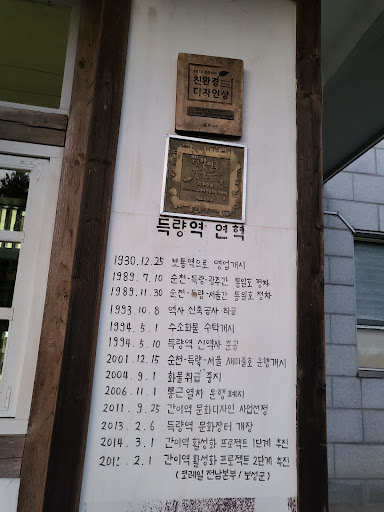 친환경
디자인상
득량역 연혁
1930.12.25 보통역으로 영업개시
1989.7.10 순천-득량-광주간 통일호 정차
1989.11.30 순천-득량-서울간 통일호 정차
1993.10.8 역사 신축공사 착공
1994.5.1 수소화물 수탁개시
1994.5.10 득량역 신역사 준공
2001.12.15 순천-득량-서울 새마을호 운행개시
2004.9.1 화물취급 중지
2006.11.1 통근열차 운행폐지
2011.9.25 간이역 문화디자인 사업선정
2013.2.6 득량역 문화장터 개장
2014.3.1 간이역 활성화 프로젝트 1단계 추진
2015.2.1 간이역 활성화 프로젝트 2단계 추진
(코레일 전남본부/보성군)